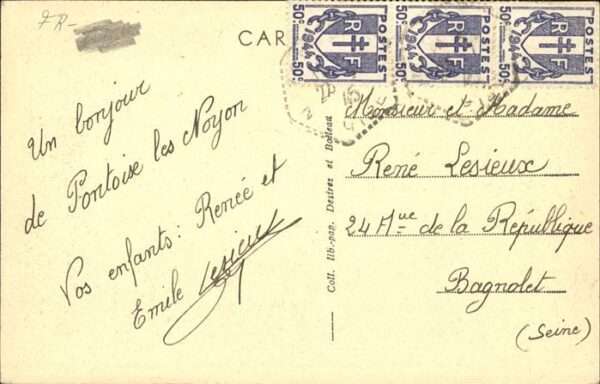 FR-
CAR
50c POSTES 1944 RF 50c
50c POSTES 1944 RF 50c
50c POSTES 1944 RF 50c
Un bonjour
de Pontoise les Noyon
Vos enfants : Renée et
Emile Lesieux
Coll. lib.-pap. Destres et Boileau
Monsieur et Madame
René Lesieux
24 Aue de la République
Bagnolet
(Seine)